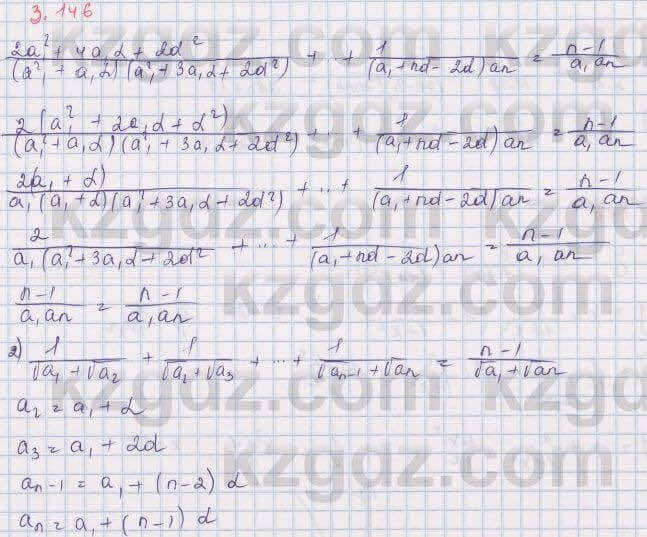 3.146
(2a₁² + 4a₁d + 2d²)/((a₁² + a₁d)(a₁² + 3a₁d + 2d²)) + + 1/((a₁ + nd - 2d)an) = (n-1)/(a₁an)
2(a₁² + 2a₁d + d²)/((a₁² + a₁d)(a₁² + 3a₁d + 2d²)) + ... + 1/((a₁ + nd - 2d)an) = (n-1)/(a₁an)
2(a₁ + d)/(a₁(a₁ + d)(a₁² + 3a₁d + 2d²) + ... + 1/((a₁ + nd - 2d)an = (n-1)/(a₁an)
2/(a₁(a₁² + 3a₁d + 2d² + ... + 1/((a₁ + nd - 2d)an = (n-1)/(a₁an)
(n-1)/(a₁an) = (n-1)/(a₁an)
2) 1/(√a₁ + √a₂) + 1/(√a₂ + √a₃) + ... + 1/(√aₙ₋₁ + √an) = (n-1)/(√a₁ + √an)
a₂ = a₁ + d
a₃ = a₁ + 2d
aₙ₋₁ = a₁ + (n-2) d
aₙ = a₁ + (n-1) d
kzgdz.com